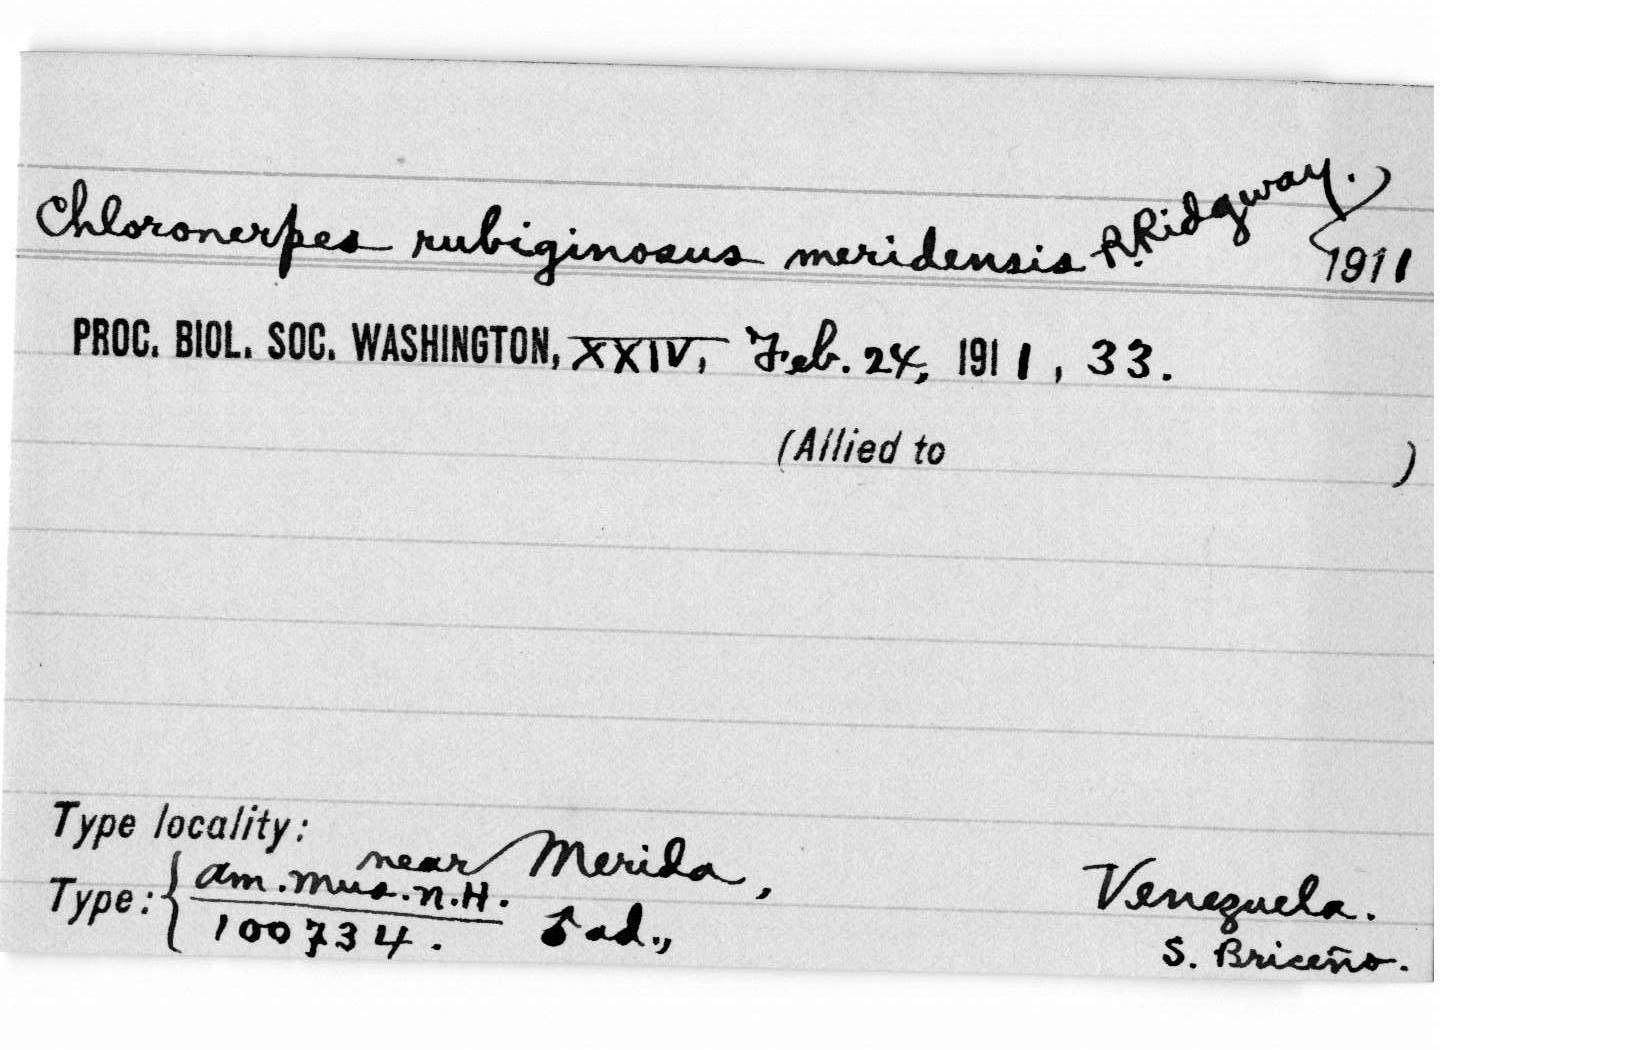 Chloronerpes rubiginosus meridensis R. Ridgway.
1911
PROC. BIOL. SOC. WASHINGTON, XXIV, Feb. 24, 1911, 33.
(Allied to )
Type locality:
near Merida, Venezuela.
Type: { Am. Mus. N. H.
100734. ♂ ad., S. Briceño.